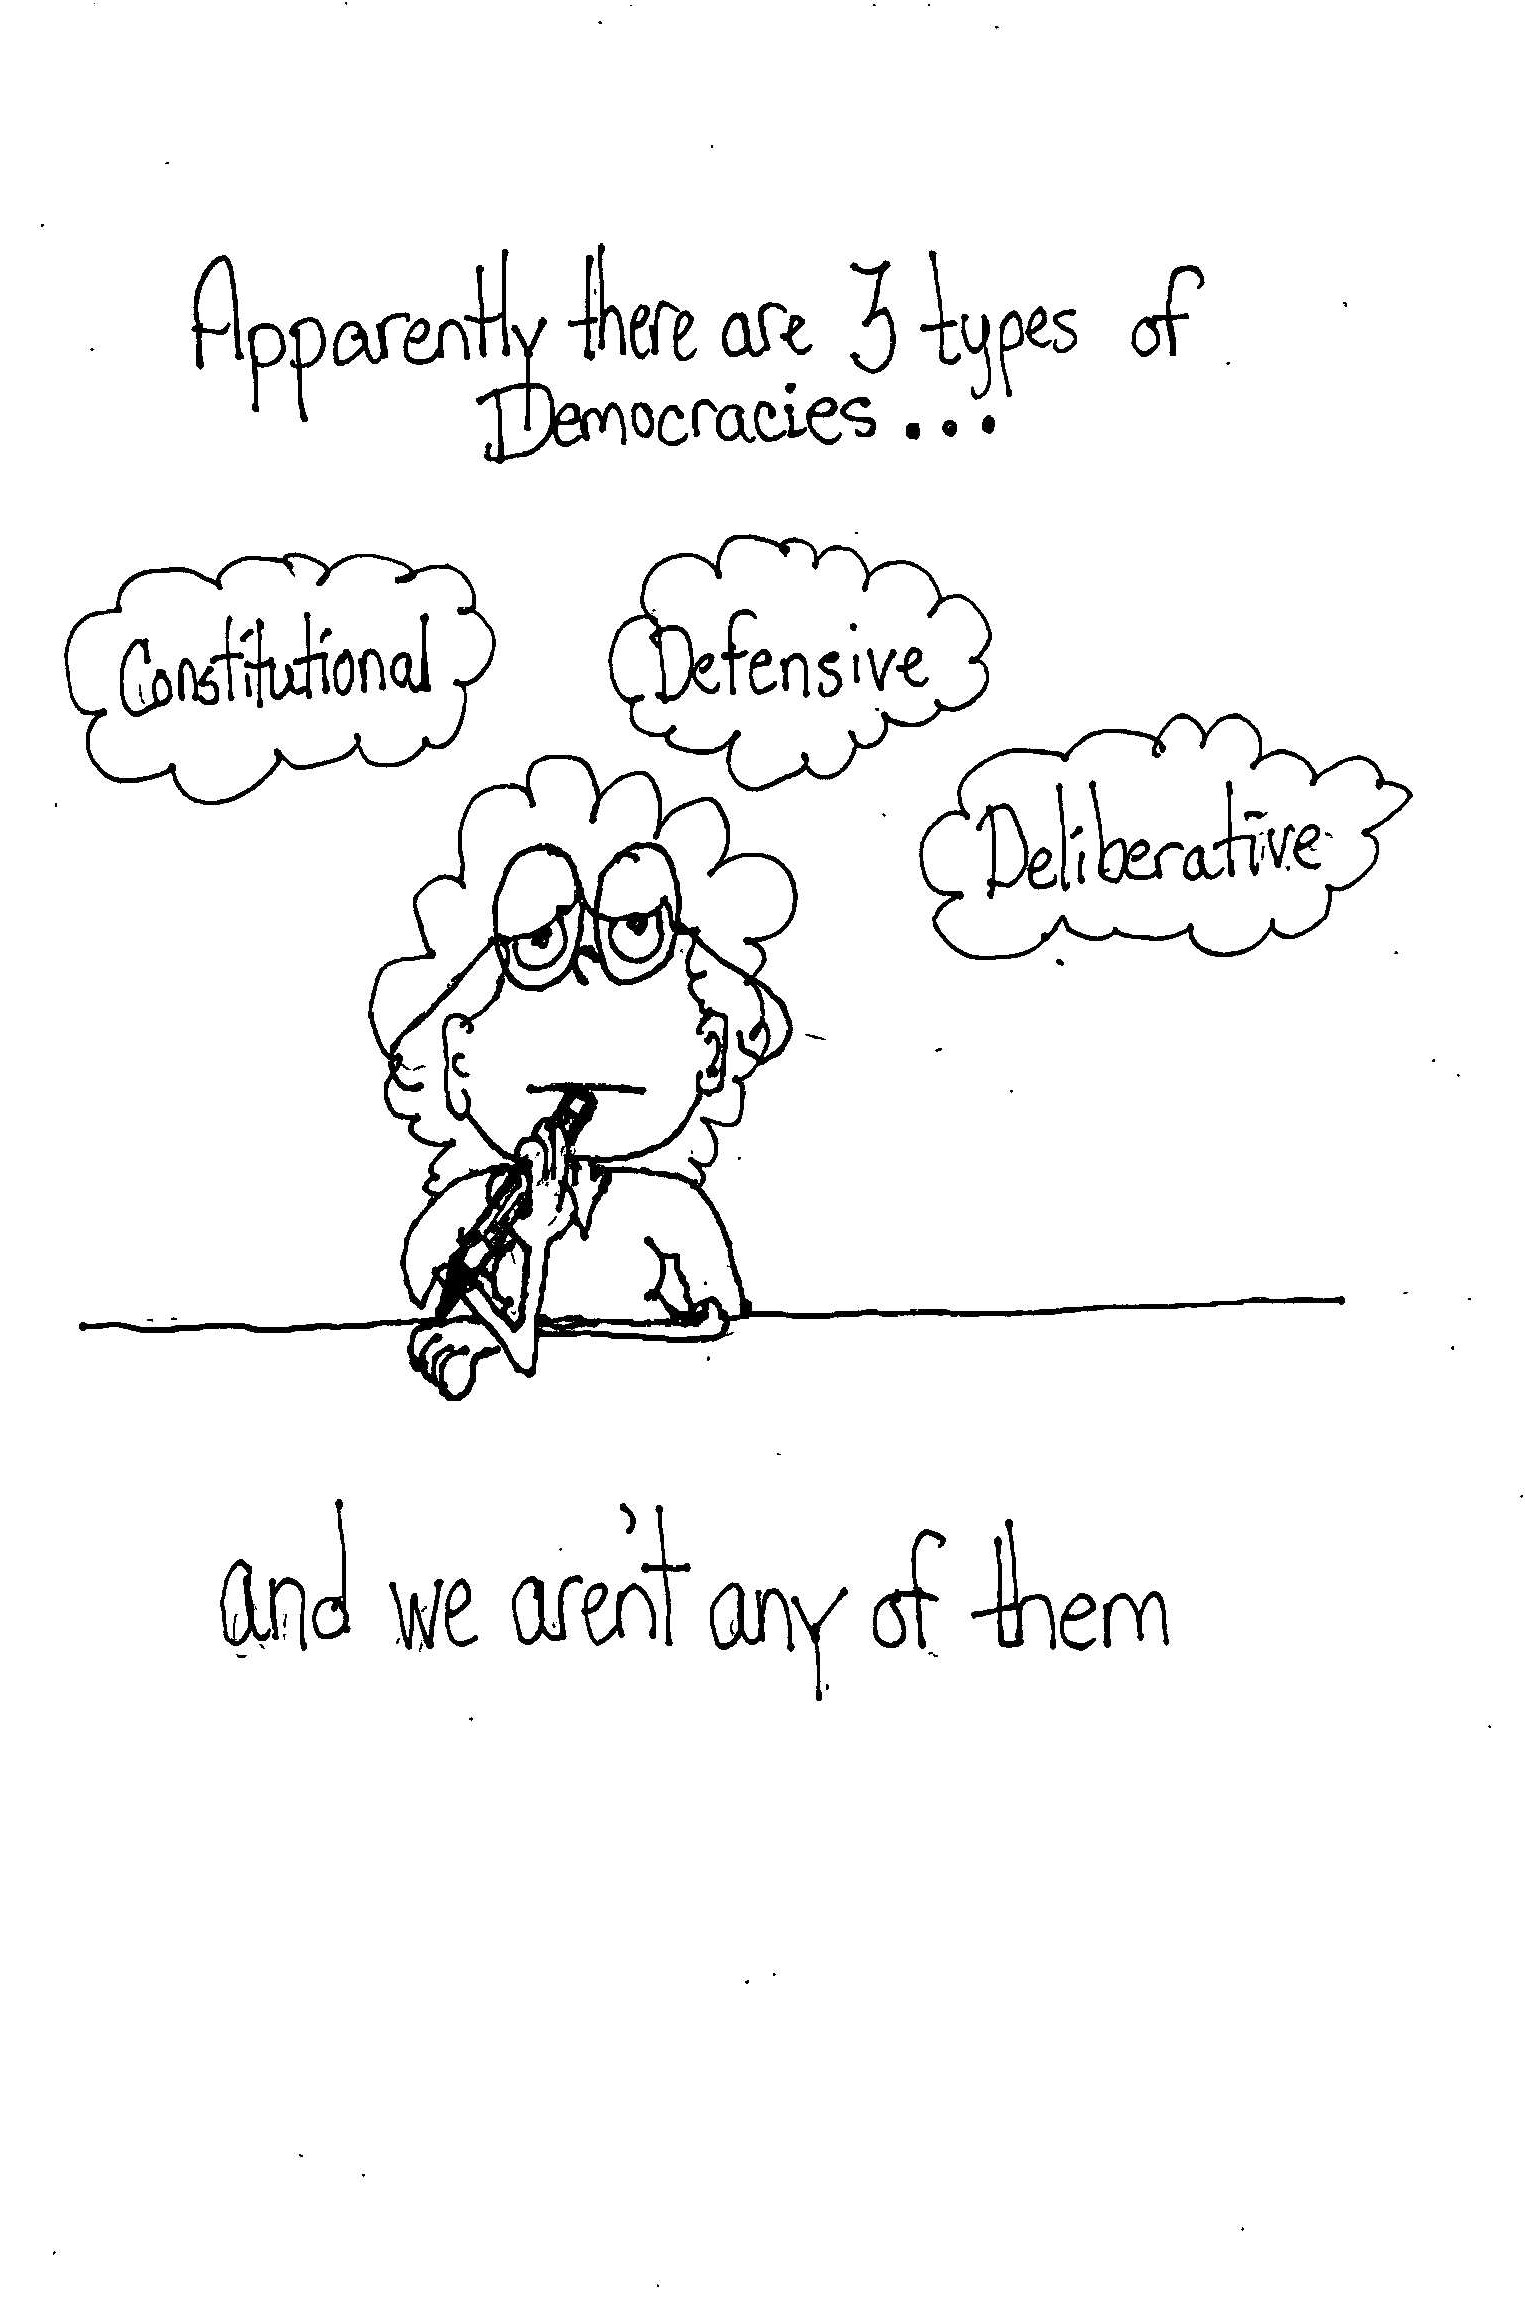 Apparently there are 3 types of
Democracies...
Constitutional
Defensive
Deliberative
and we aren't any of them